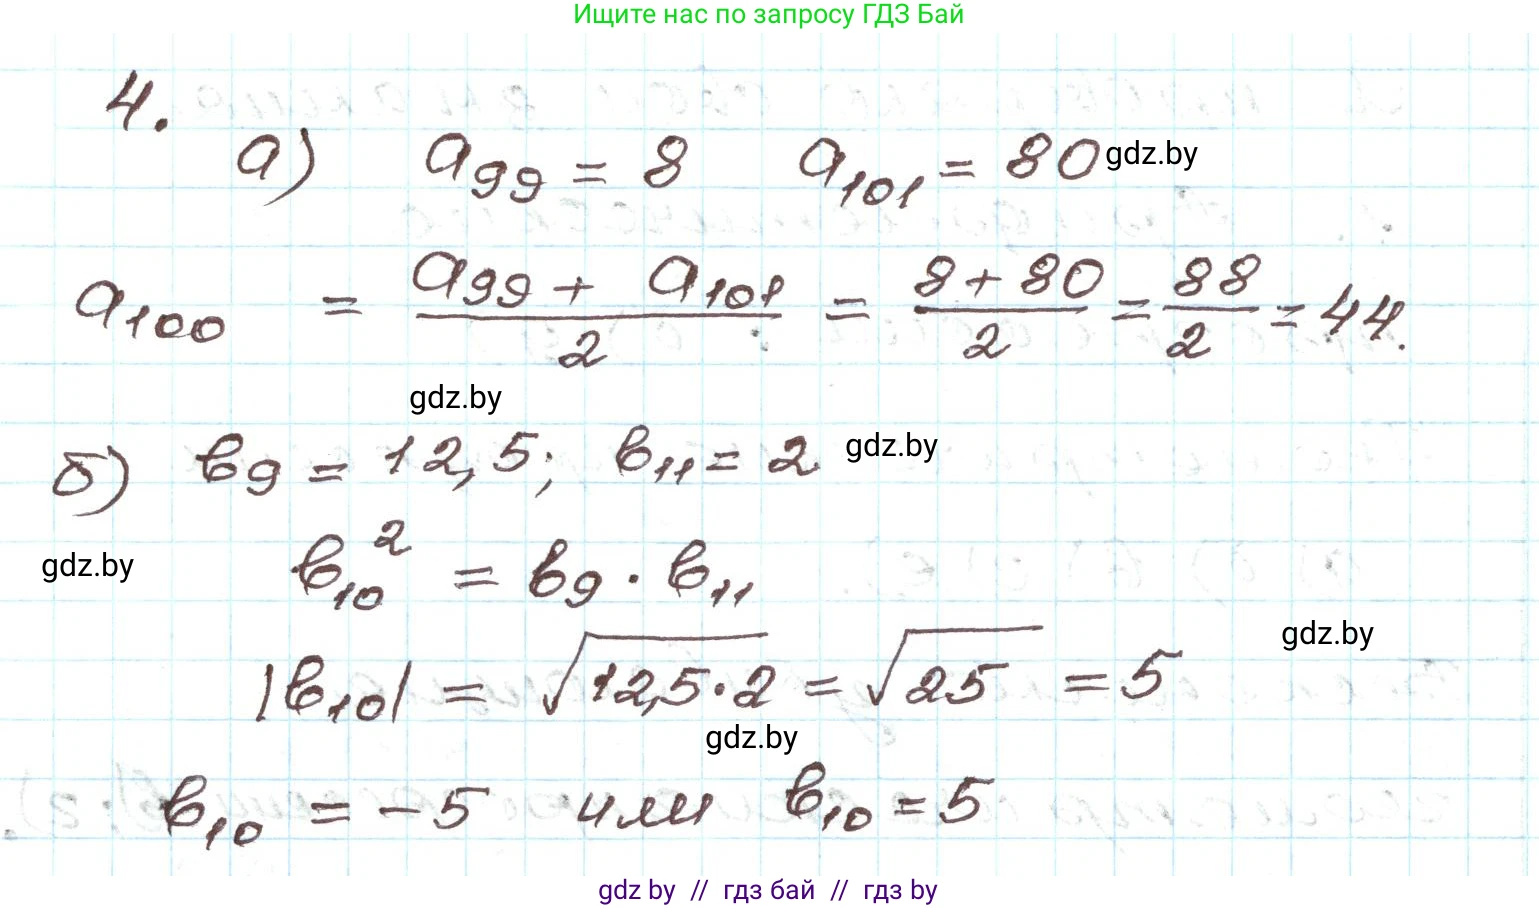 Ищите нас по запросу ГДЗ Бай
4.
а) a₉₉ = 8 a₁₀₁ = 80 gdz.by
a₁₀₀ = (a₉₉ + a₁₀₁)/2 = (8 + 80)/2 = 88/2 = 44.
gdz.by
б) в₉ = 12,5; в₁₁ = 2 gdz.by
в₁₀² = в₉ · в₁₁
gdz.by
gdz.by
|в₁₀| = √(12,5·2) = √25 = 5
gdz.by
в₁₀ = -5 или в₁₀ = 5
gdz by // гдз бай // гдз by